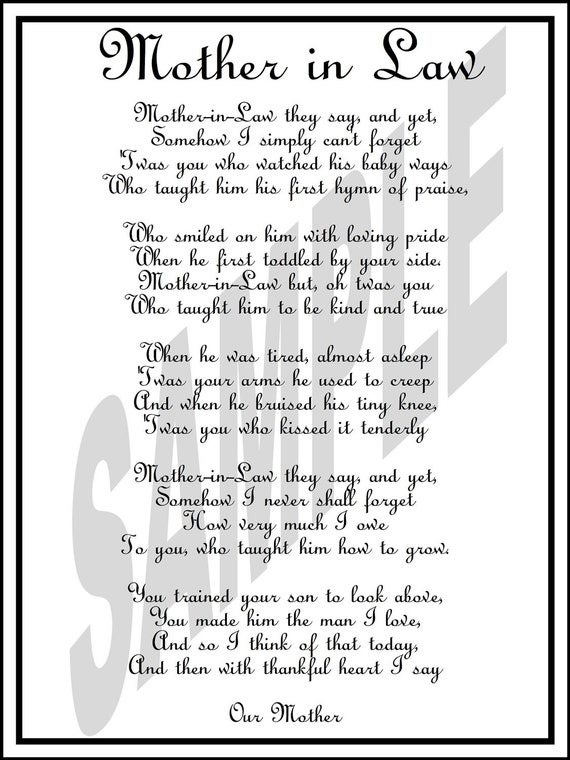 Mother in Law
Mother-in-Law they say, and yet,
Somehow I simply can't forget
'Twas you who watched his baby ways
Who taught him his first hymn of praise,
Who smiled on him with loving pride
When he first toddled by your side.
Mother-in-Law but, oh twas you
Who taught him to be kind and true
When he was tired, almost asleep
'Twas your arms he used to creep
And when he bruised his tiny knee,
'Twas you who kissed it tenderly
Mother-in-Law they say, and yet,
Somehow I never shall forget
How very much I owe
To you, who taught him how to grow.
You trained your son to look above,
You made him the man I love,
And so I think of that today,
And then with thankful heart I say
Our Mother
SAMPLE